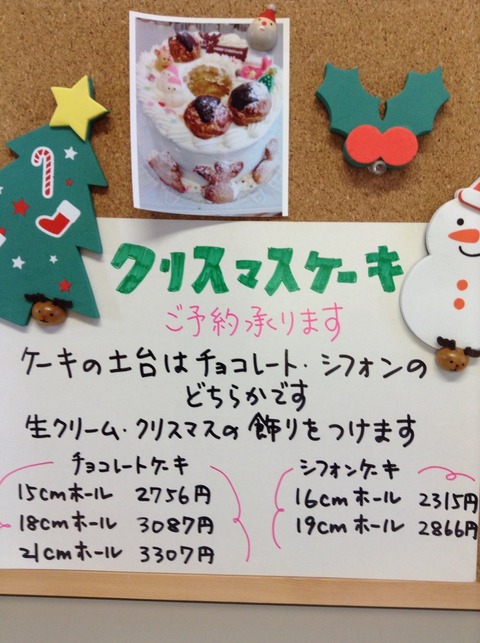 クリスマスケーキ
ご予約承ります
ケーキの土台はチョコレート・シフォンの
どちらかです
生クリーム・クリスマスの飾りをつけます
チョコレートケーキ
15cmホール 2756円
18cmホール 3087円
21cmホール 3307円
シフォンケーキ
16cmホール 2315円
19cmホール 2866円